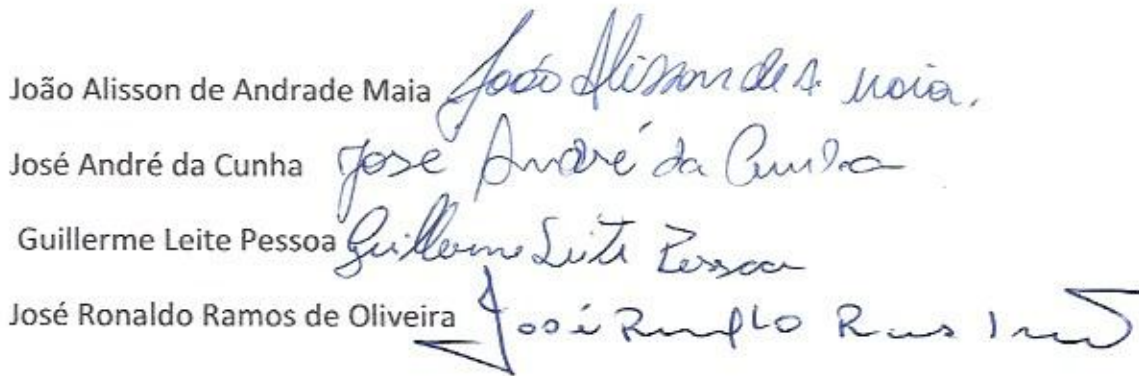 João Alisson de Andrade Maia João Alisson de A Maia.
José André da Cunha José André da Cunha
Guillerme Leite Pessoa Guillerme Leite Pessoa
José Ronaldo Ramos de Oliveira José Ronaldo